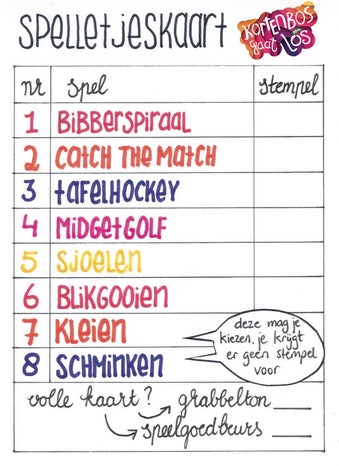 SPELLETJESKAART
KORTENBOS
gaat LOS
nr spel stempel
1 BIBBERSPIRAAL
2 CATCH THE MATCH
3 TAFELHOCKEY
4 MIDGETGOLF
5 SJOELEN
6 BLIKGOOIEN
7 KLEIEN
8 SCHMINKEN
deze mag je
kiezen, je krijgt
er geen stempel
voor
volle kaart? grabbelton
speelgoedbeurs